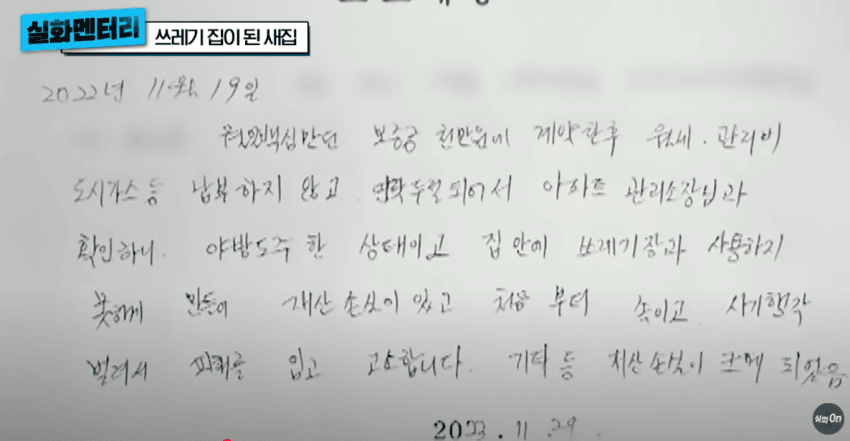 실화멘터리
쓰레기 집이 된 새집
2022년 11월 19일
보증금 천만원에 계약한후 월세. 관리비
도시가스 등 납부하지 않고 연락두절되어서 아파트 관리소장님과
확인하니. 야밤도주 한 상태이고 집안에 쓰레기장과 사용하지
못하게 만들어 재산 손실이 있고 처음 부터 속이고 사기행각
벌려서 피해를 입고 고소합니다. 기타 등 재산손실이 크게 되었음
2023.11.29
실화On